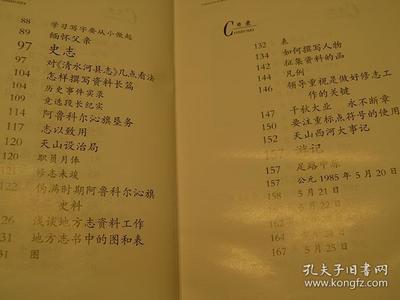 88 学习写字要从小做起
89 缅怀父亲
97 史志
97 对《清水河县志》几点看法
104 怎样撰写资料长篇
104 历史事件实录
109 竞选段长纪实
114 阿鲁科尔沁旗垦务
117 志以致用
120 天山设治局
120 职员月体
121 修志未竣
122 伪满时期阿鲁科尔沁旗
史料
126 浅谈地方志资料工作
131 地方志书中的图和表
131 图
目录
132 表
134 如何撰写人物
142 征集资料的函
144 凡例
146 领导重视是做好修志工
作的关键
147 千秋大业 永不断章
150 要注重标点符号的使用
152 天山西河大事记
157 游记
157 足踏中原
157 公元1985年5月20日
158 5月21日
5月22日
162
164
167 5月25日
孔夫子旧书网